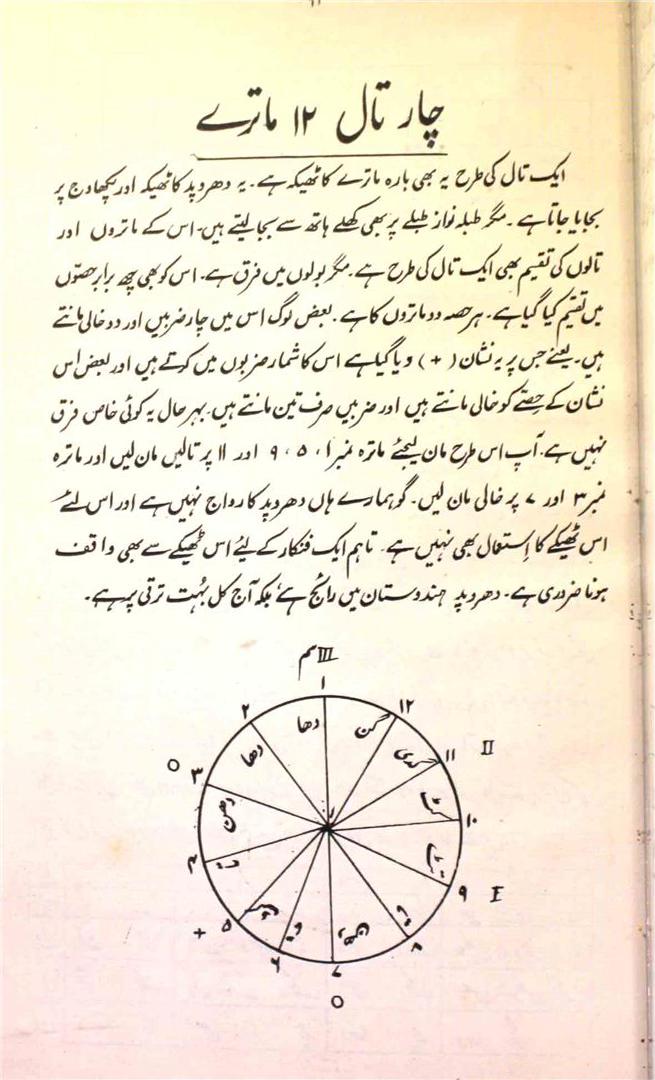 چار تال ۱۲ ماترے
ایک تال کی طرح یہ بھی بارہ ماترے کا ٹھیکہ ہے۔ یہ دھروپد کا ٹھیکہ اور پکھاوج پر
بجایا جاتا ہے۔ مگر طبلہ نواز طبلے پر بھی کھلے ہاتھ سے بجا لیتے ہیں۔ اس کے ماتروں اور
تالوں کی تقیم بھی ایک تال کی طرح ہے۔ مگر بولوں میں فرق ہے۔ اس کو بھی چھ برابر حصّوں
میں تقیم کیا گیا ہے۔ ہر حصہ دو ماتروں کا ہے۔ بعض لوگ اس میں چار ضربیں اور دو خالی مانتے
ہیں۔ یعنے جس پر یہ نشان (+) دیا گیا ہے اس کا شمار ضربوں میں کرتے ہیں اور بعض اس
نشان کے حصّے کو خالی مانتے ہیں اور ضربیں صرف تین مانتے ہیں۔ بہر حال یہ کوئی خاص فرق
نہیں ہے۔ آپ اس طرح مان لیجئے ماترہ نمبر ۱، ۵، ۹ اور ۱۱ پر تالیں مان لیں اور ماترہ
نمبر ۳ اور ۷ پر خالی مان لیں۔ گو ہمارے ہاں دھروپد کا رواج نہیں ہے اور اس لئے
اس ٹھیکے کا اِستعمال بھی نہیں ہے۔ تاہم ایک فنکار کے لئے اس ٹھیکے سے بھی واقف
ہونا ضروری ہے۔ دھروپد ہندوستان میں رائج ہے بلکہ آج کل بہُت ترقی پر ہے۔
III سم
۱
۲
۱۲
دھا
گن
دھا
۱۱
گدی
II
O
۳
دھن
کٹ
۱۰
۴
تا
۹
I
+
۵
تا
۶
۷
۸
O